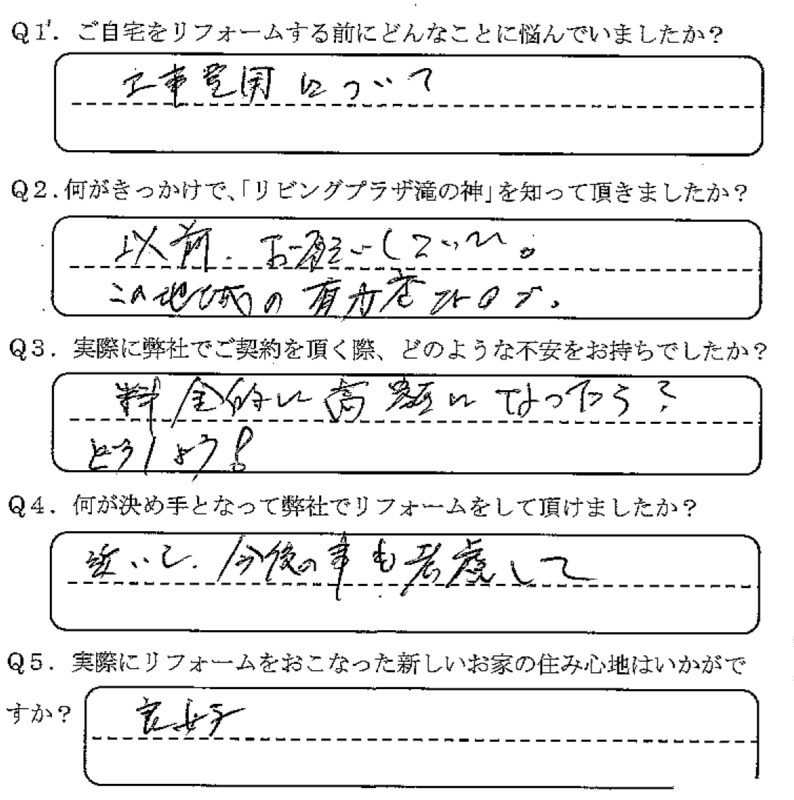 Q1. ご自宅をリフォームする前にどんなことに悩んでいましたか？
工事費用について
Q2.何がきっかけで、「リビングプラザ滝の神」を知って頂きましたか？
以前、お願いしていた。
この地域の有力店
Q3. 実際に弊社でご契約を頂く際、どのような不安をお持ちでしたか？
料金的に高額になったら？
どうしよう！
Q4. 何が決め手となって弊社でリフォームをして頂けましたか？
近いし、今後の事も考慮して
Q5. 実際にリフォームをおこなった新しいお家の住み心地はいかがで
すか？
良好